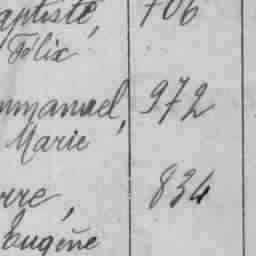 aptiste, 706
Félix
mmanuel, 972
Marie
rre, 834
Eugène